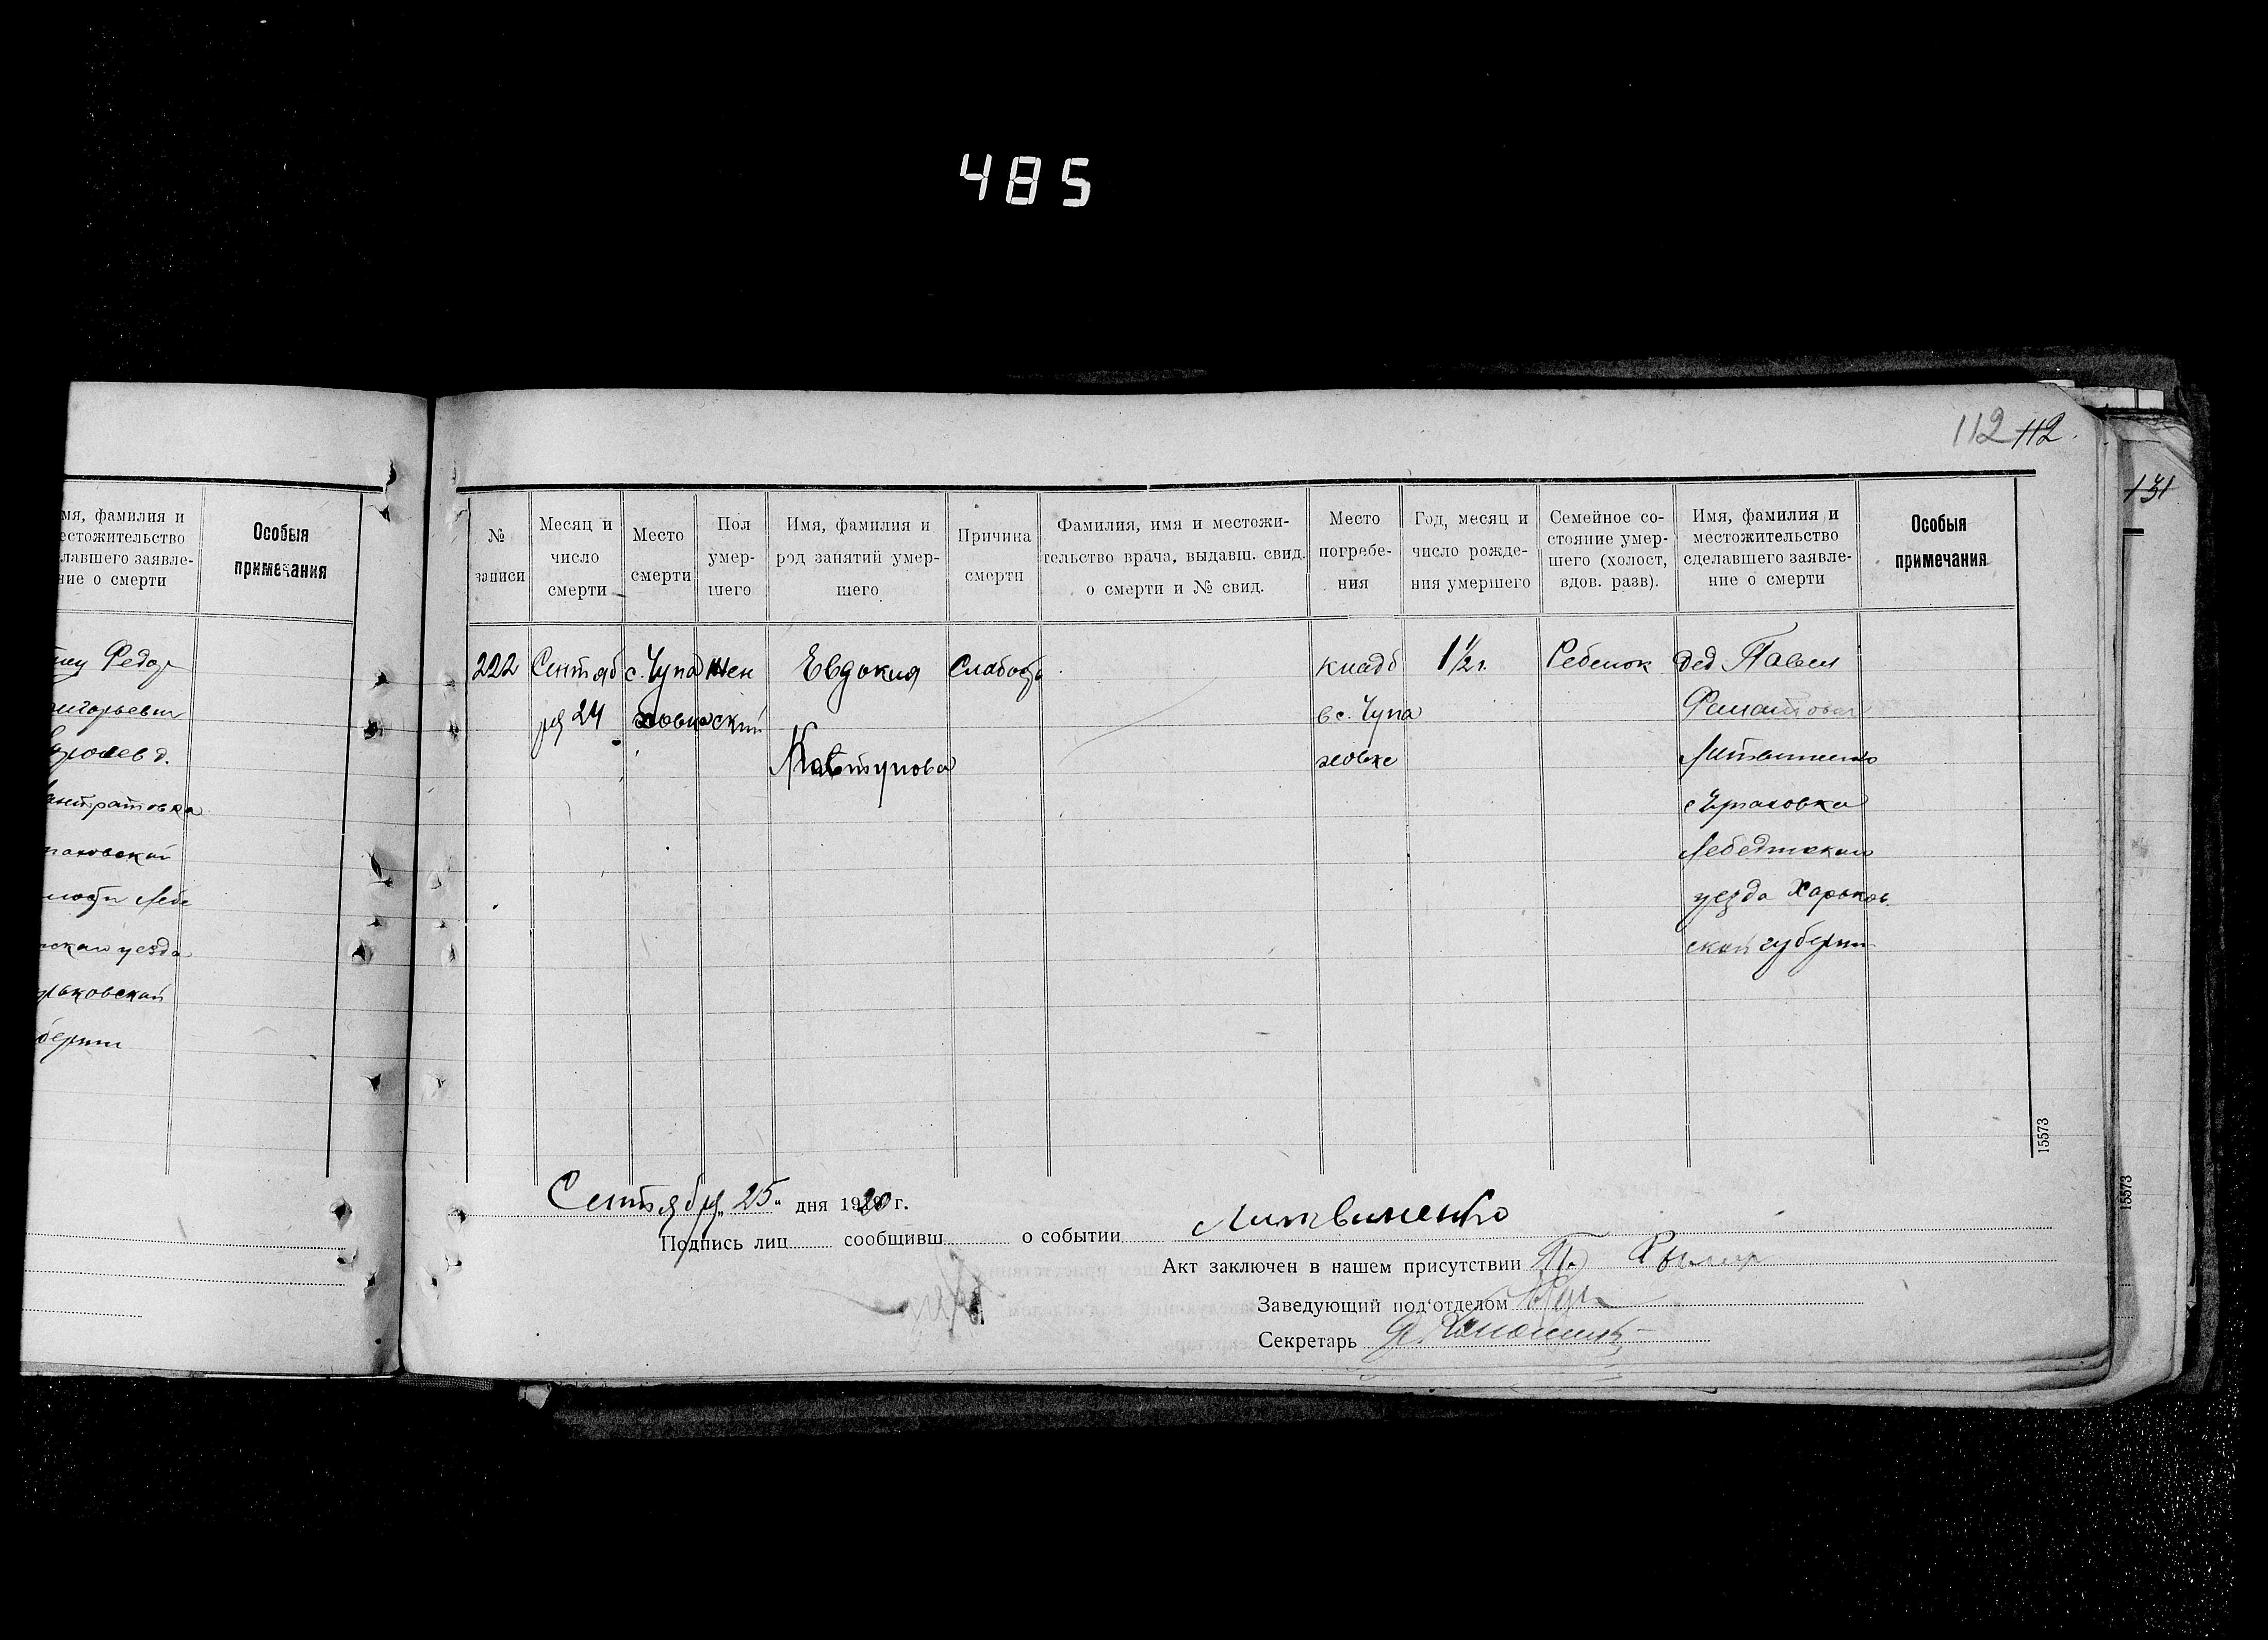 485
112 112.
131
мя, фамилия и
естожительство
лавшего заявле-
ние о смерти
Особыя
примечания
Федор
игорьевич
антратовка
уезда
рьковской
бернии
№
записи
Месяц и
число
смерти
Место
смерти
Пол
умер-
шего
Имя, фамилия и
род занятий умер-
шего
Причина
смерти
Фамилия, имя и местожи-
тельство врача, выдавш. свид.
о смерти и № свид.
Место
погребе-
ния
Год, месяц и
число рожде-
ния умершего
Семейное со-
стояние умер-
шего (холост,
вдов. разв).
Имя, фамилия и
местожительство
сделавшего заявле-
ние о смерти
Особыя
примечания
222
Сентяб
ря 24
с. Чупа
ховка
жен
ский
Евдокия
Слабость
кладб
в с. Чупа
ховке
1½ г.
Ребенок
дед Павел
Литвиненко
с Чупаховка
Лебединскаи
уезда Харьков
ской губернии
15573
15573
Сентября „25“ дня 1920 г.
Подпись лиц сообщивш о событии Литвиненко
Акт заключен в нашем присутствии П.
Заведующий под'отделом
Секретарь